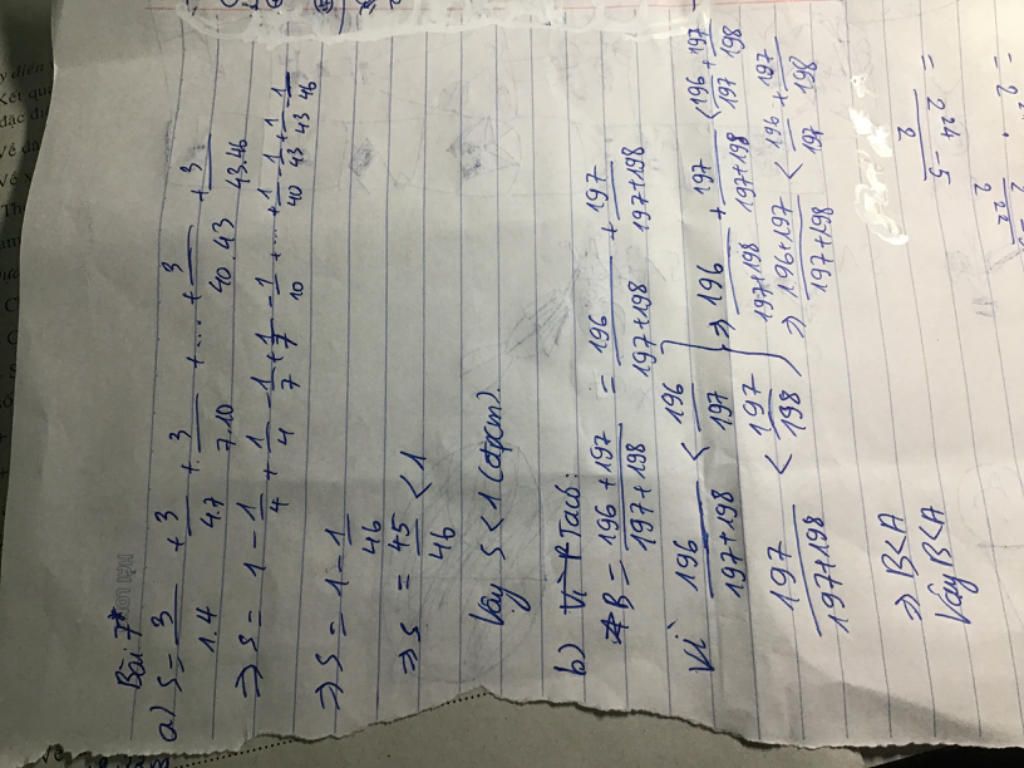 Bài 7*
a) S = 3/1.4 + 3/4.7 + 3/7.10 + ... + 3/40.43 + 3/43.46
=> S = 1 - 1/4 + 1/4 - 1/7 + 1/7 - 1/10 + ... + 1/40 - 1/43 + 1/43 - 1/46
=> S = 1 - 1/46
=> S = 45/46 < 1
Vậy S < 1 (đpcm).
b) Vì Ta có:
B = 196+197/197+198 = 196/197+198 + 197/197+198
Vì 196/197+198 < 196/197
197/197+198 < 197/198
=> 196/197+198 + 197/197+198 < 196/197 + 197/198
=> 196+197/197+198 < 196/197 + 197/198
=> B < A
Vậy B < A